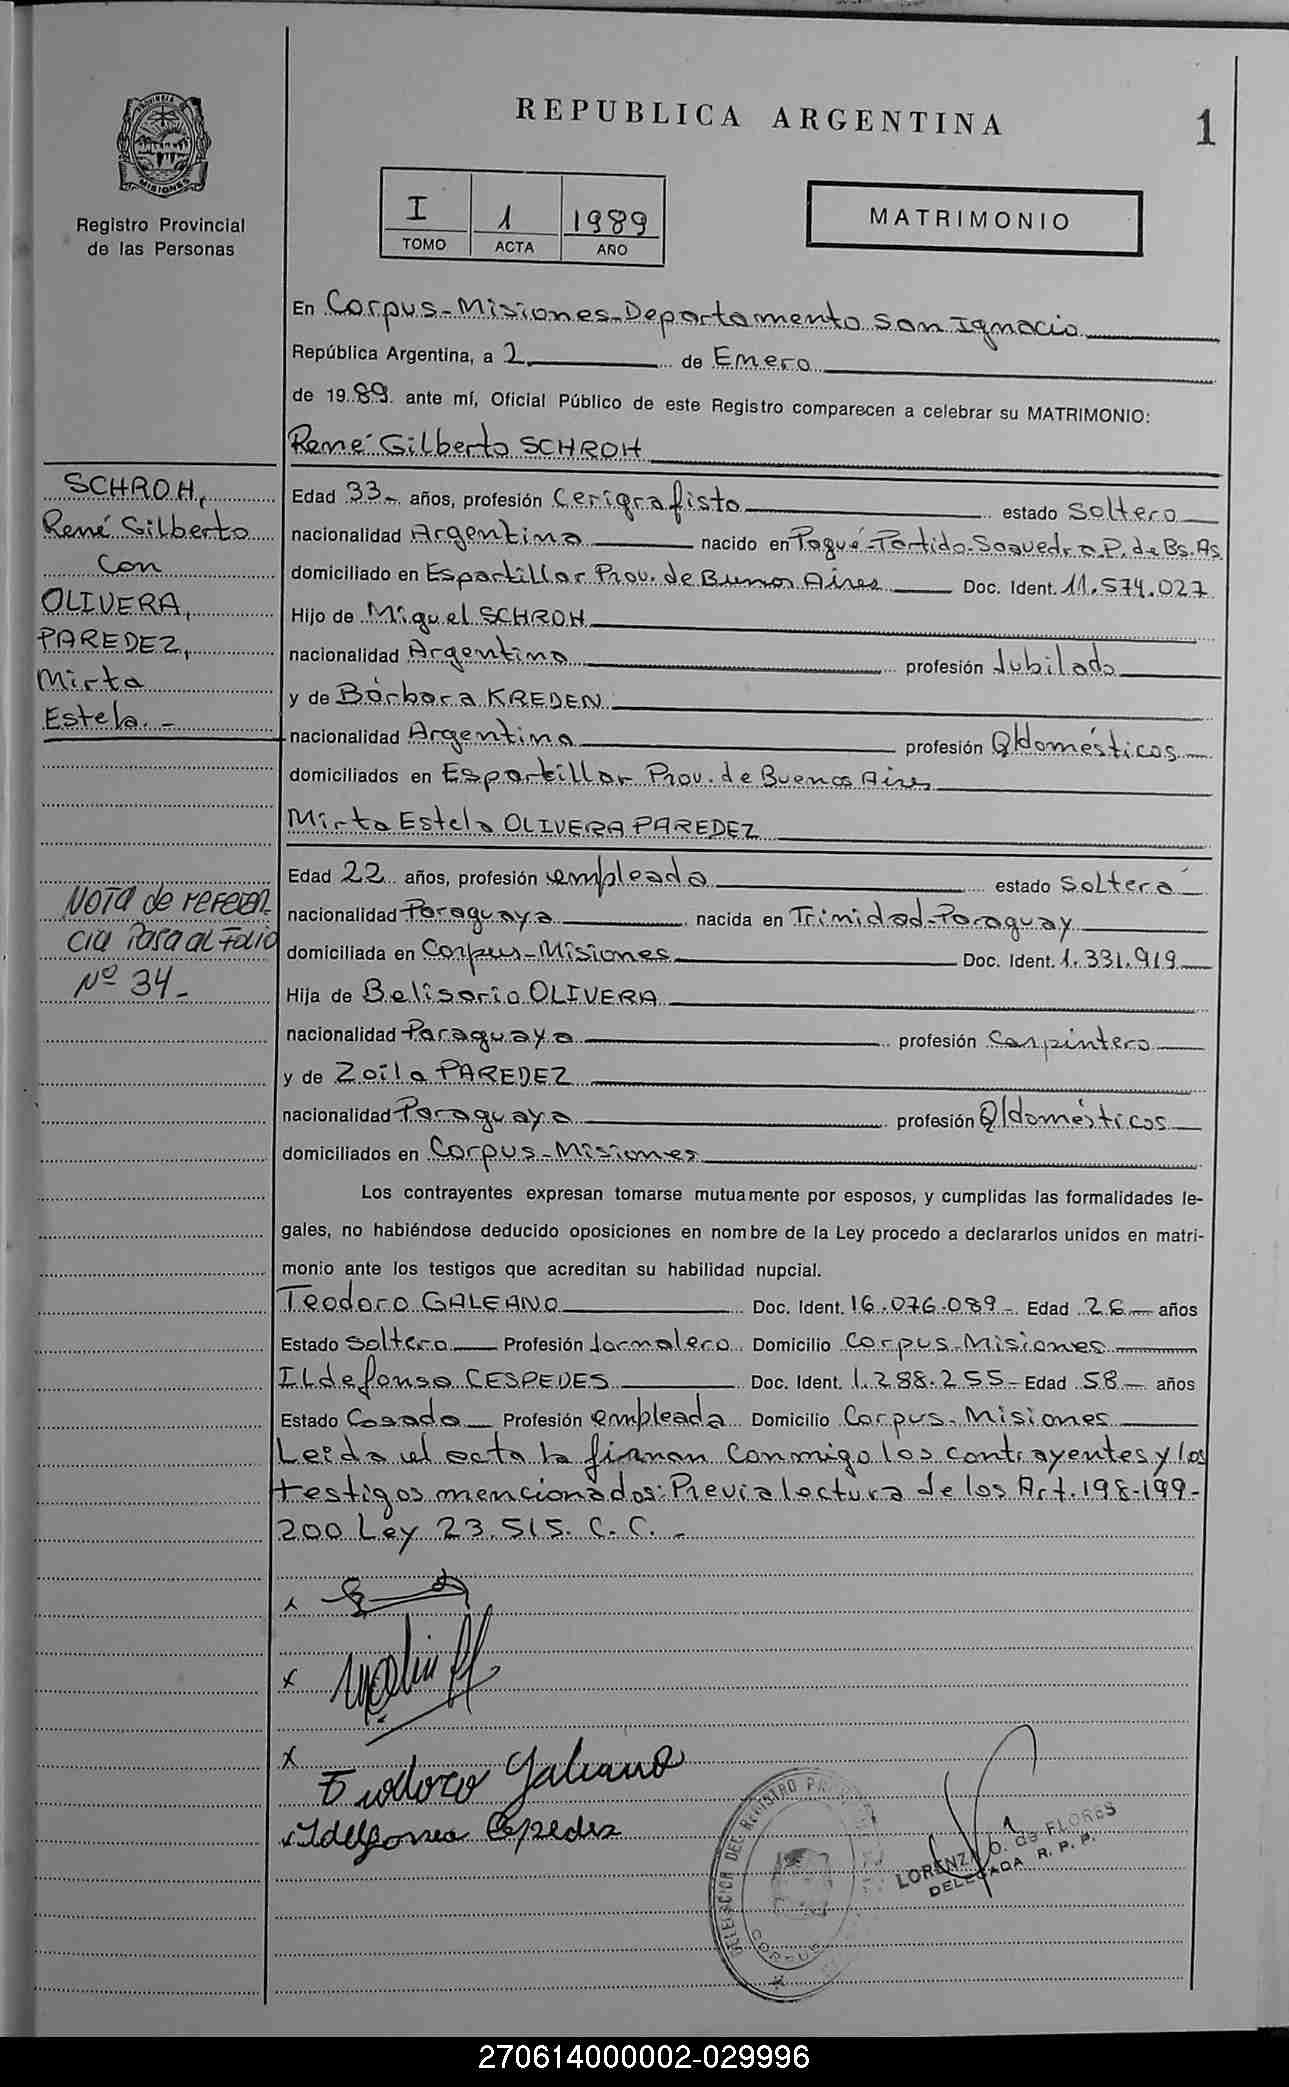 REPUBLICA ARGENTINA
1
PROVINCIA DE MISIONES
Registro Provincial
de las Personas
I 1 1989
TOMO ACTA AÑO
MATRIMONIO
En Corpus-Misiones-Departamento San Ignacio
República Argentina, a 2 de Enero
de 1989 ante mí, Oficial Público de este Registro comparecen a celebrar su MATRIMONIO:
René Gilberto SCHROH
SCHROH,
René Gilberto
Con
OLIVERA,
PAREDEZ,
Mirta
Estela.-
Edad 33- años, profesión Cerigrafista estado Soltero
nacionalidad Argentina nacido en Pagué-Partido-Saavedra P. de Bs. As
domiciliado en Espartillar Prov. de Buenos Aires Doc. Ident. 11.574.027
Hijo de Miguel SCHROH
nacionalidad Argentina profesión Jubilado
y de Bárbara KREDEN
nacionalidad Argentina profesión Q/domésticos
domiciliados en Espartillar Prov. de Buenos Aires
Mirta Estela OLIVERA PAREDEZ
Edad 22 años, profesión empleada estado Soltera
nacionalidad Paraguaya nacida en Trinidad-Paraguay
domiciliada en Corpus-Misiones Doc. Ident. 1.331.919
Hija de Belisario OLIVERA
nacionalidad Paraguaya profesión Carpintero
y de Zoila PAREDEZ
nacionalidad Paraguaya profesión Q/domésticos
domiciliados en Corpus-Misiones
NOTA de REFEREN-
CIA PASA AL FOLIO
Nº 34-
Los contrayentes expresan tomarse mutuamente por esposos, y cumplidas las formalidades le-
gales, no habiéndose deducido oposiciones en nombre de la Ley procedo a declararlos unidos en matri-
monio ante los testigos que acreditan su habilidad nupcial.
Teodoro GALEANO Doc. Ident. 16.076.089- Edad 26 años
Estado Soltero Profesión Jornalero Domicilio Corpus-Misiones
ILdefonsa CESPEDES Doc. Ident. 1.288.255- Edad 58- años
Estado Casada Profesión empleada Domicilio Corpus-Misiones
Leida el acta la firman conmigo los contrayentes y los
testigos mencionados: Previa lectura de los Art. 198-199-
200 Ley 23.515. C.C. -
x
x
x
Teodoro Galeano
x Ildefonsa Cespedes
DELEGACION DEL REGISTRO
CORPUS
LORENZA O. de FLORES
DELEGADA R. P. P.
270614000002-029996